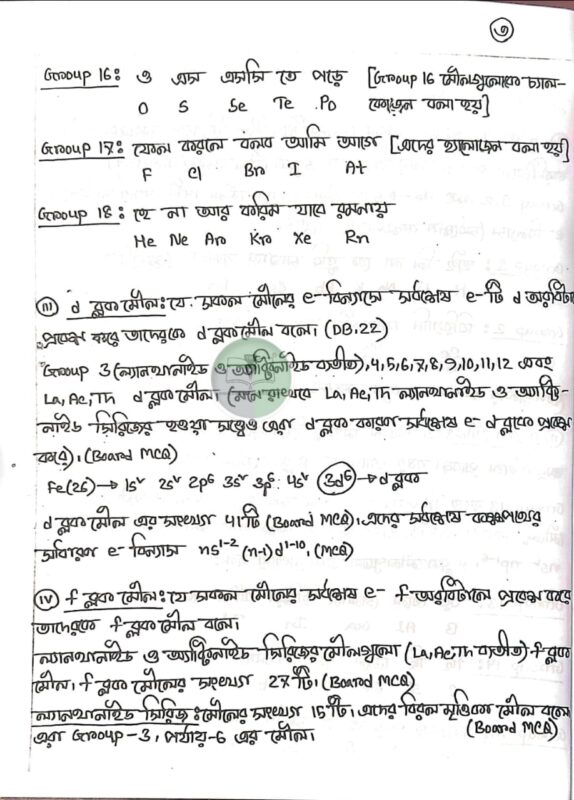 ৩
Group 16: ও এস এসসি তে পড়ে [Group 16 মৌলগুলোকে চ্যাল-
O S Se Te Po কোজেন বলা হয়]
Group 17: ফেল করলে বলব আমি আজ [এদের হ্যালোজেন বলা হয়]
F Cl Br I At
Group 18: হে না আর করিম যাবে রমনায়
He Ne Ar Kr Xe Rn
(iii) d ব্লক মৌল: যে সকল মৌলের e- বিন্যাসে সর্বশেষ e- টি d অরবিটালে
প্রবেশ করে তাদেরকে d ব্লক মৌল বলে। (DB.22)
Group 3 (ল্যানথানাইড ও অ্যাক্টিনাইড ব্যতীত), 4,5,6,7,8,9,10,11,12 এবং
La, Ac, Th d ব্লক মৌল। (মনে রাখবে La, Ac, Th ল্যানথানাইড ও অ্যাক্টি-
নাইড সিরিজের হওয়া সত্ত্বেও এরা d ব্লক কারণ সর্বশেষ e- d ব্লকে প্রবেশ
করে)। (Board MCQ)
Fe(26) → 1s² 2s² 2p⁶ 3s² 3p⁶ 4s² 3d⁶ → d ব্লক
d ব্লক মৌল এর সংখ্যা 41 টি (Board MCQ)। এদের সর্বশেষ কক্ষপথের
সাধারণ e- বিন্যাস ns¹⁻² (n-1)d¹⁻¹⁰। (MCQ)
(iv) f ব্লক মৌল: যে সকল মৌলের সর্বশেষ e- f অরবিটালে প্রবেশ করে
তাদেরকে f ব্লক মৌল বলে।
ল্যানথানাইড ও অ্যাক্টিনাইড সিরিজের মৌলগুলো (La, Ac, Th ব্যতীত) f ব্লক
মৌল। f ব্লক মৌলের সংখ্যা 27 টি। (Board MCQ)
ল্যানথানাইড সিরিজ: মৌলের সংখ্যা 15 টি। এদের বিরল মৃত্তিকা মৌল বলে
এরা Group-3, পর্যায়-6 এর মৌল। (Board MCQ)